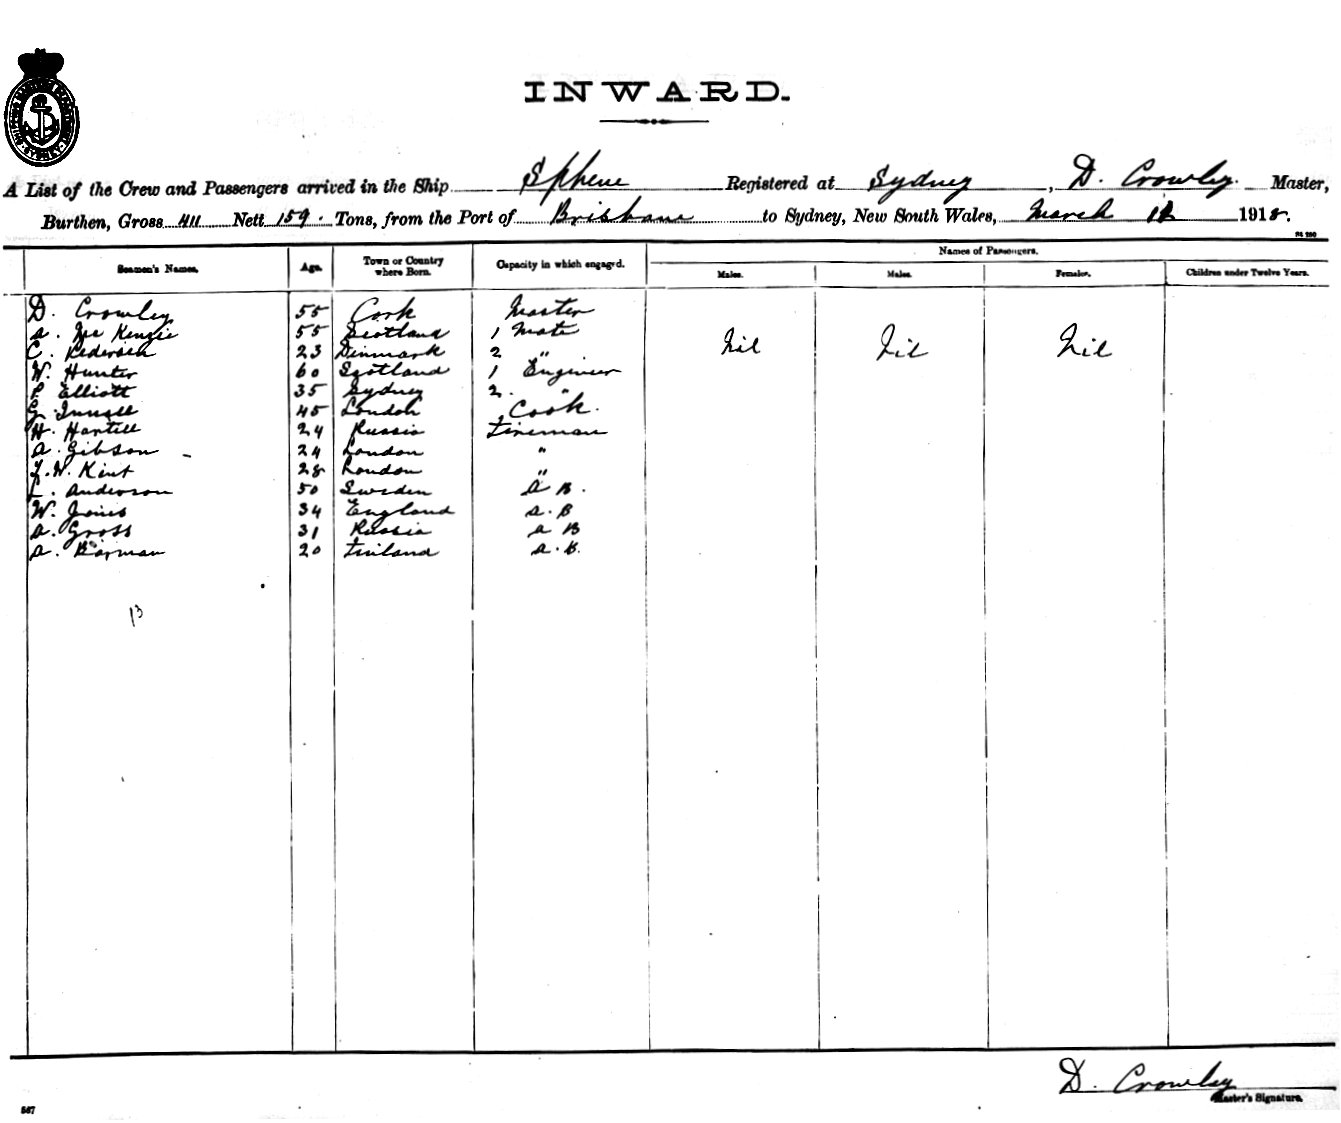 INWARD.
A List of the Crew and Passengers arrived in the Ship Sphene Registered at Sydney, D. Crowley. Master,
Burthen, Gross 411 Nett 159. Tons, from the Port of Brisbane to Sydney, New South Wales, March 12 1918.
Seamen's Names. Age. Town or Country where Born. Capacity in which engaged. Names of Passengers.
Males. Males. Females. Children under Twelve Years.
D. Crowley 55 Cork Master
a. Mc Kenzie 55 Scotland 1 Mate Nil Nil Nil
C. Pedersen 23 Dinmark 2 "
W. Hunter 60 Scotland 1 Engineer
Elliott 35 Sydney 2. "
G. 45 London Cook.
H. Hartill 24 Russia Fireman
a. Gibson 24 London "
W. Kint 28 London "
L. Anderson 50 Sweden a B.
W. Jones 34 England a. B
a. Gross 31 Russia a B
a. 20 Finland a. B.
13
D. Crowley
Master's Signature.
587